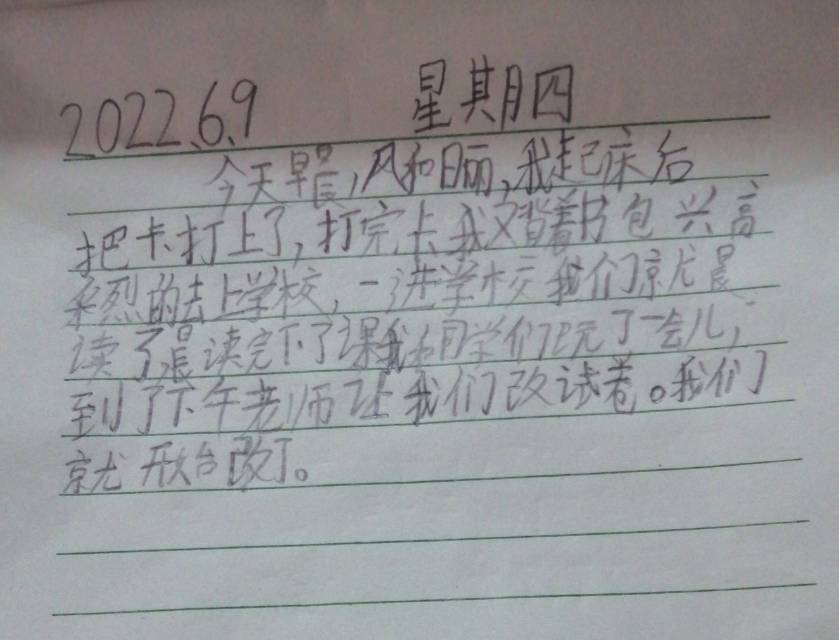 2022.6.9 星期四
今天早晨,风和日丽,我起床后
把卡打上了,打完卡我又背着书包兴高
采烈的去上学校,一进学校我们就晨
读了晨读完下了课我和同学们玩了一会儿,
到了下午老师让我们改试卷。我们
就开始改了。